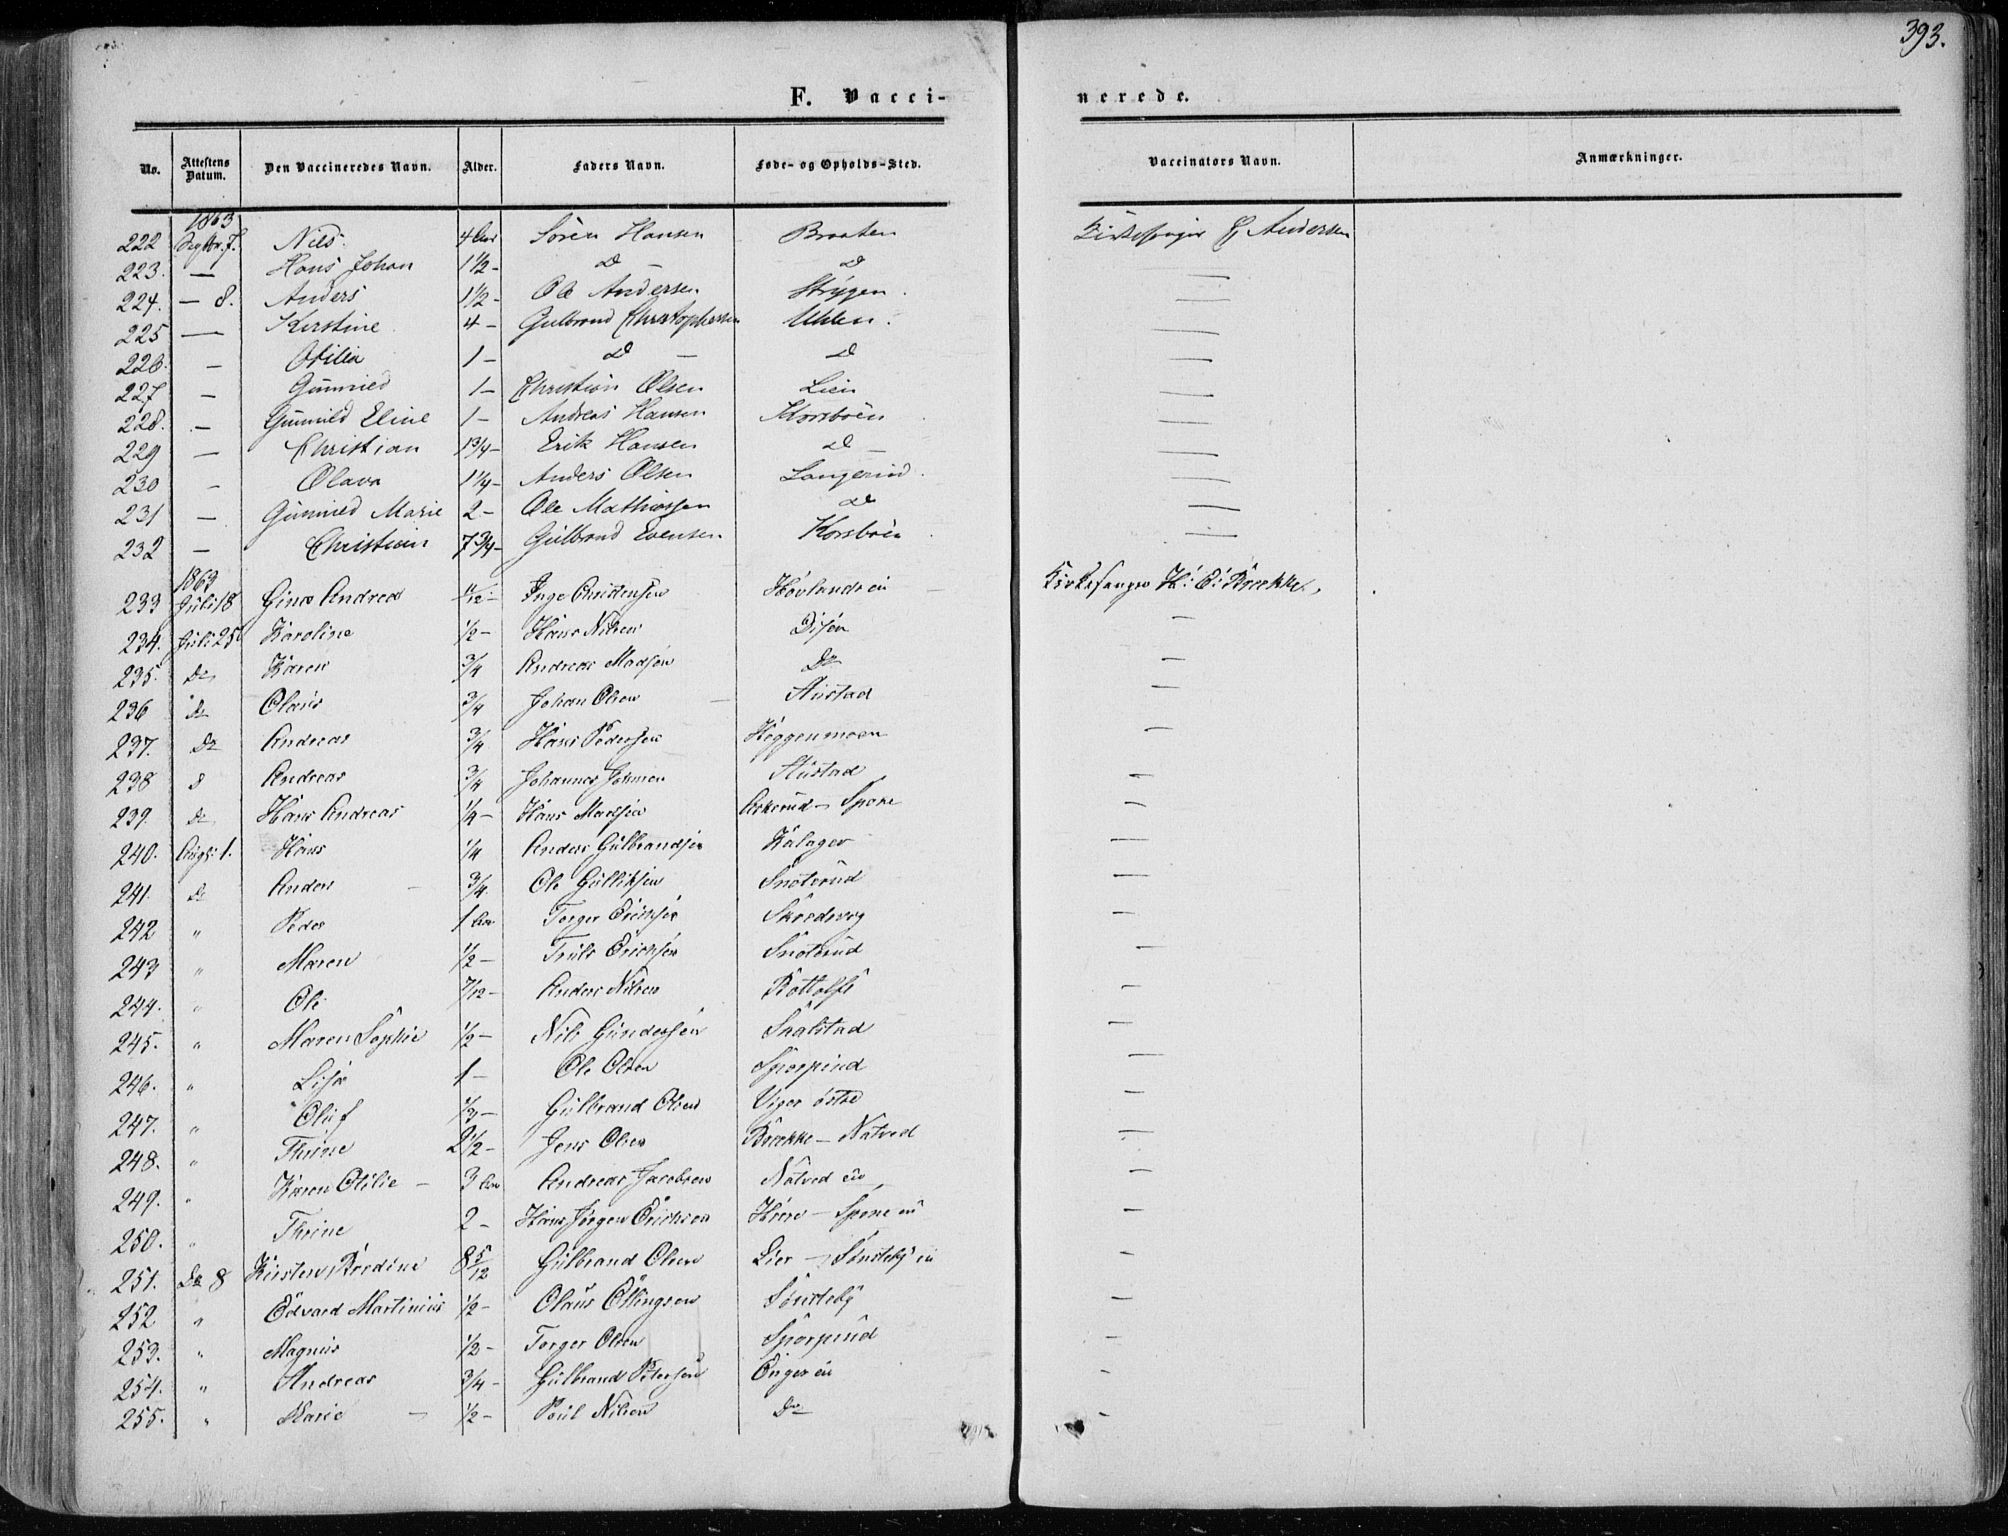 393.
F. Vacci-
nerede.
No. Attestens Datum. Den Vaccineredes Navn. Alder. Faders Navn. Føde- og Opholds-Sted. Vaccinators Navn. Anmærkninger.
1863
222 Septbr. 7. Nils 4 Aar Sören Hansen Braaten Kirkesanger Andersen
223. — Hans Johan 1½ - D — D —
224. — 8. Anders 1½ - Ole Andersen Strygen. —
225 — Kerstine 4 - Gulbrand Christophersen Uhlen. —
226. — Otilia 1 - D — D —
227 — Gunnild 1 - Christian Olsen Lien —
228. — Gunnild Eline 1 - Andreas Hansen Korsboen —
229 — Christian 1¾ - Erik Hansen D — —
230 — Olava 1¼ - Anders Olsen Langerud. —
231 — Gunnild Marie 2 - Ole Mathiassen D —
232 — Christian 7¾ - Gulbrand Evensen Korsboen —
1863
233 Juli 18 Gina Andrea Inge Christensen Hovlandsei Kirkesanger H. E. Brække.
234. Juli 25 Karoline ½ - Hans Nilsen Disen —
235. Do Karen ¾ Andreas Madsen Do —
236 Do Olaus ¾ Johan Olsen — Stustad —
237. Do Andreas ¾ Hans Pedersen Heggenmoen —
238 Andreas ¾ Johannes Stustad —
239. Do Hans Andreas ¼ - Hans Madsen Askerud - Spone —
240. Augs: 1. Hans ¼ Anders Gulbrandsen Kalager —
241. Do Anders — ¾ Ole Gulliksen Snoterud —
242 " Peder 1 Aar Torger Ericksen Skredsvig —
243 " Maren ½ - Truls Ericksen Snoterud —
244. " Ole 7/12 - Anders Nilsen —
245. " Maren Sophie ½ - Nils Gundersen Saastad —
246. " Lisa 1 - Ole Olsen Sporpind —
247. " Oluf ⅓ - Gulbrand Olsen Viger østre —
248. " Thrine 2½ - Jens Olsen Brække - Natved —
249. " Karen Otilie — 3 Aar Andreas Jacobsen Natved ei —
250. " Thrine 2 - Hans Jørgen Ericksen - Spone ei —
251. Do 8 Kirsten Bordine 8 5/12 Gulbrand Olsen Lier - Søndeby ei —
252 " Edvard Martinius ½ - Olaus Ellingsen Søndeby —
253. " Magnus ½ - Torger Olsen Sporpind —
254. " Andreas ¾ - Gulbrand Petersen Enger ei —
255. " Marie — ½ - Poul Nilsen Do —